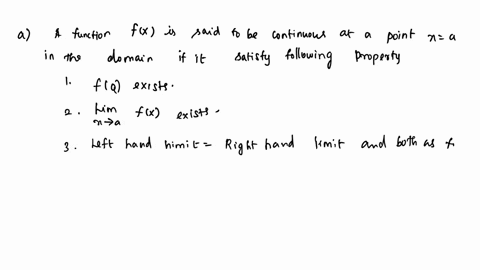 a) A function f(x) is said to be continuous at a point x=a
in the domain if it satisfy following property
1. f(a) exists.
2. Lim x→a f(x) exists.
3. Left hand limit = Right hand limit and both as f